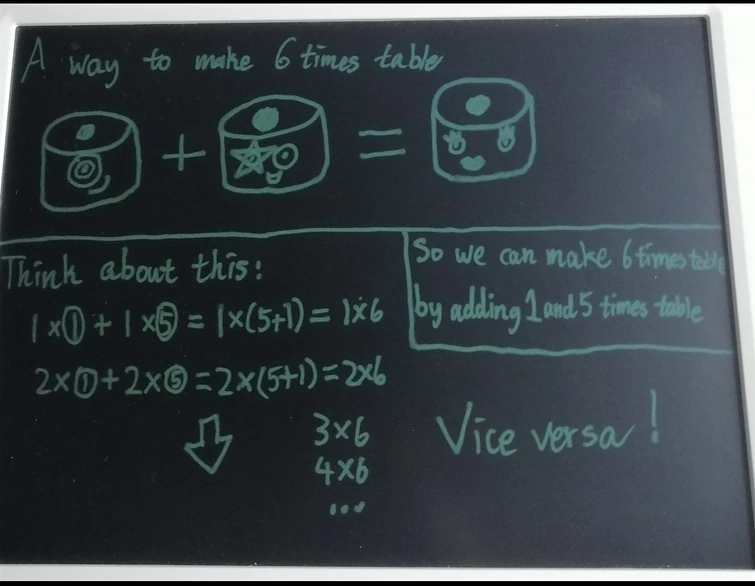 A way to make 6 times table
+ =
Think about this:
1×① + 1×⑤ = 1×(5+1) = 1×6
2×①+2×⑤=2×(5+1)=2×6
3×6
4×6
...
So we can make 6 times table
by adding 1 and 5 times table
Vice versa!